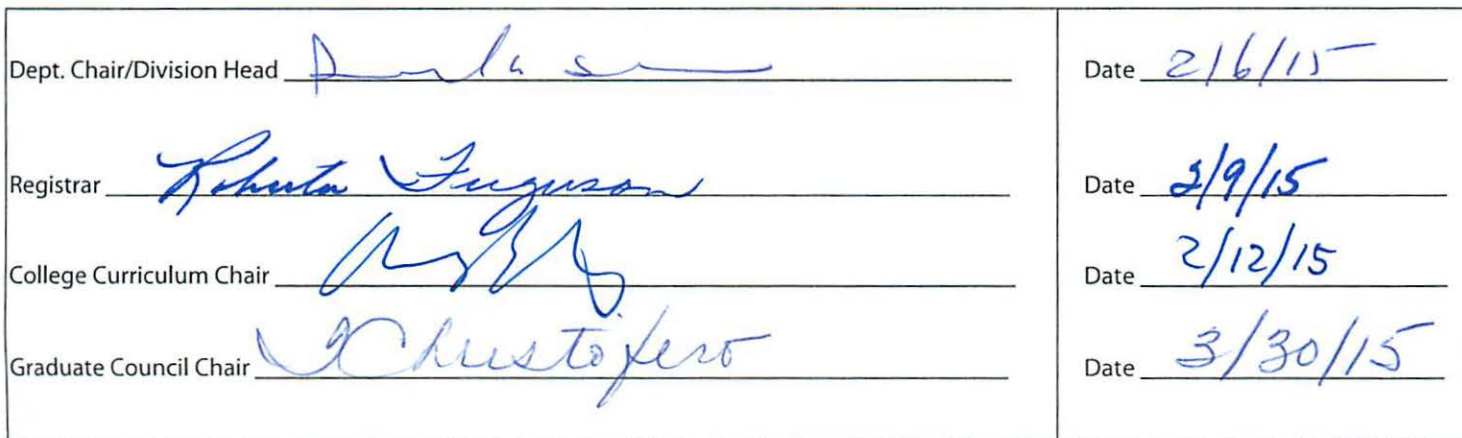 Dept. Chair/Division Head Date 2/6/15
Registrar Roberta Ferguson Date 2/9/15
College Curriculum Chair Date 2/12/15
Graduate Council Chair Christofero Date 3/30/15